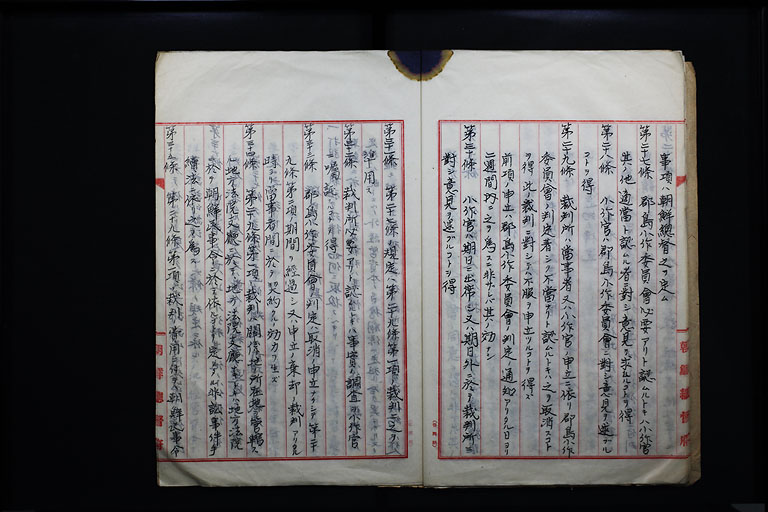 事項ハ朝鮮總督之ヲ定ム
第二十七條 郡島小作委員會必要アリト認ムルトキハ小作官
其ノ他適當ト認ムル者ニ對シ意見ヲ求ムルコトヲ得
第二十八條 小作官ハ郡島小作委員會ニ對シ意見ヲ述ブル
コトヲ得
第二十九條 裁判所ハ當事者又ハ小作官ノ申立ニ依リ郡島小作
委員會ノ判定著シク不當ナリト認ムルトキハ之ヲ取消スコト
ヲ得此ノ裁判ニ對シテハ不服ヲ申立ツルコトヲ得ズ
前項ノ申立ハ郡島小作委員會ノ判定ノ通知アリタル日ヨリ
二週間内ニ之ヲ爲スニ非サレバ其ノ効ナシ
第三十條 小作官ハ期日ニ出席シ又ハ期日外ニ於テ裁判所ニ
對シ意見ヲ述ブルコトヲ得
第三十一條 規定ハ第二十九條第一項ノ裁判ニ之ヲ
準用ス
第三十二條 裁判所必要アリト認ムルトキハ事實ノ調査ヲ小作官
ニ囑託スルコトヲ得
第三十三條 郡島小作委員會ノ判定ハ取消ノ申立ナクシテ第二十
九條第二項ノ期間ヲ經過シ又ハ申立ノ棄却ノ裁判アリタル
時ハ當事者間ニ於テ契約タル効力ヲ生ズ
第三十四條 第二十九條第一項ノ裁判ハ關係 所在地ヲ管轄ス
ル地方法院
ニ於テ朝鮮民事令ニ於テ依ルコトヲ定メタル非訟事件手
續法ニ依リ之ヲ爲ス
第三十五條 第二十九條第一項ノ裁判費用ニ付テハ朝鮮民事令
朝鮮總督府
朝鮮總督府